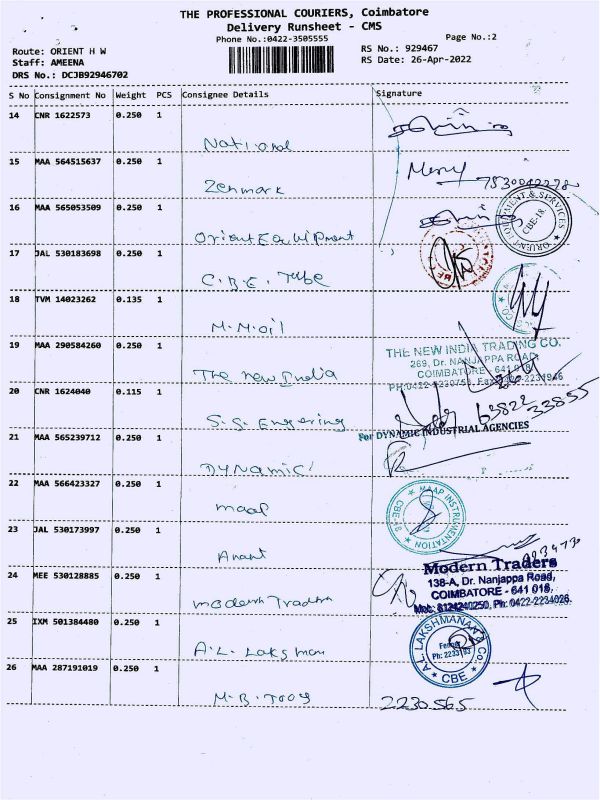 THE PROFESSIONAL COURIERS, Coimbatore
Delivery Runsheet - CMS
Phone No.:0422-3505555
Page No.:2
Route: ORIENT H W
RS No.: 929467
Staff: AMEENA
RS Date: 26-Apr-2022
DRS No.: DCJB92946702
S No Consignment No Weight PCS Consignee Details Signature
14 CNR 1622573 0.250 1
National
15 MAA 564515637 0.250 1
Zenmark
7530042278
16 MAA 565053509 0.250 1
Orient Equipment
ORIENT EQUIPMENT & SERVICES
CBE-18
17 JAL 530183698 0.250 1
C.B.E. Tube
18 TVM 14023262 0.135 1
M.M.oil
19 MAA 290584260 0.250 1
The new India
THE NEW INDIA TRADING CO.
269, Dr. NANJAPPA ROAD,
COIMBATORE - 641 018
20 CNR 1624040 0.115 1
S.S. Engering
63822 33855
21 MAA 565239712 0.250 1
DYNAMIC
For DYNAMIC INDUSTRIAL AGENCIES
22 MAA 566423327 0.250 1
maap
MAAP INSTRUMENTATION
CBE-18
23 JAL 530173997 0.250 1
Anant
24 MEE 530128885 0.250 1
modern Traders
Modern Traders
138-A, Dr. Nanjappa Road,
COIMBATORE - 641 018.
Mob: 8124240250, Ph: 0422-2234026.
25 IXM 501384480 0.250 1
A.L. Laksman
A.L. LAKSHMANAN & CO.
CBE
26 MAA 287191019 0.250 1
M.B. Tools
2230565